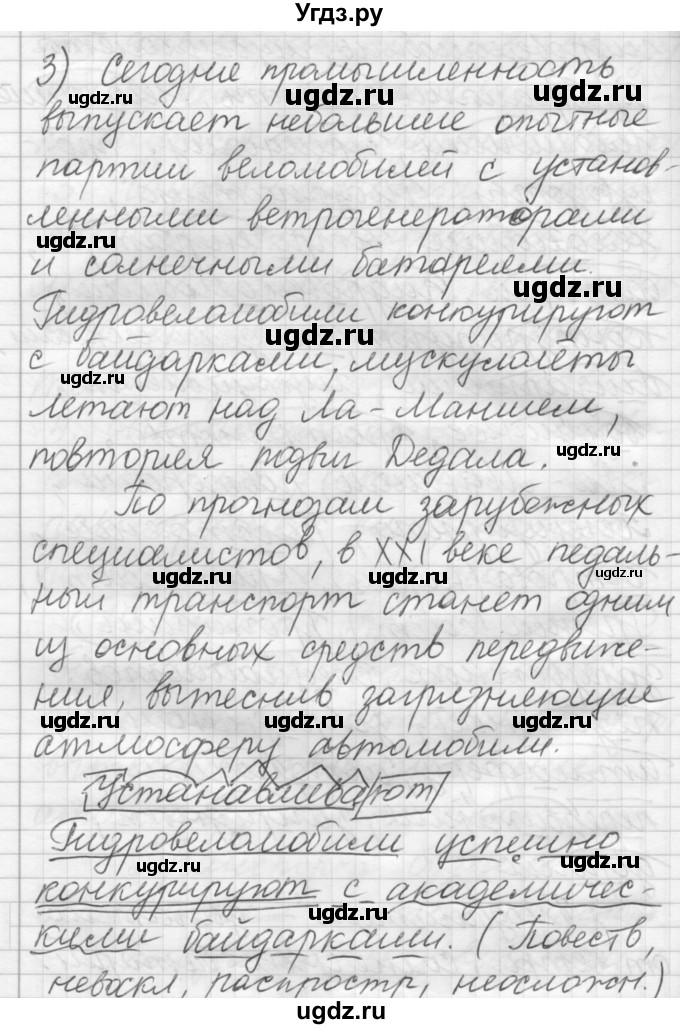 Угдз.ру
3) Сегодня промышленность
выпускает небольшие опытные
партии веломобилей с установ-
ленными ветрогенераторами
и солнечными батареями.
Гидровеломобили конкурируют
с байдарками, мускулолёты
летают над Ла-Маншем,
повторяя подвиг Дедала.
По прогнозам зарубежных
специалистов, в XXI веке педаль-
ный транспорт станет одним
из основных средств передвиже-
ния, вытеснив загрязняющие
атмосферу автомобили.
Устанавливают
Гидровеломобили успешно
конкурируют с академичес-
кими байдарками. (Повеств,
невоскл, распростр, неосложн.)
ugdz.ru